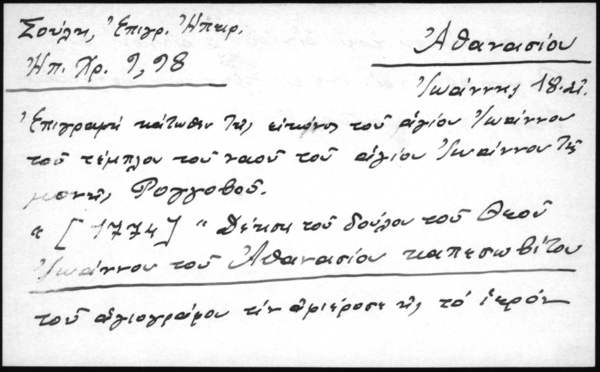 Σούλη, Ἐπιγρ. Ἠπειρ.
Ἠπ. Χρ. 9, 98
Ἀθανασίου
Ἰωάννης 18. αἰ.
Ἐπιγραφὴ κάτωθεν τῆς εἰκόνος τοῦ ἁγίου Ἰωάννου
τοῦ τέμπλου τοῦ ναοῦ τοῦ ἁγίου Ἰωάννου τῆς
μονῆς Ρογγοβοῦ.
« [1774] " Δέησις τοῦ δούλου τοῦ Θεοῦ
Ἰωάννου τοῦ Ἀθανασίου καπεσωβίτου
τοῦ ἁγιογράφου τὴν ἀφιέροσε εἰς τὸ ἱερόν